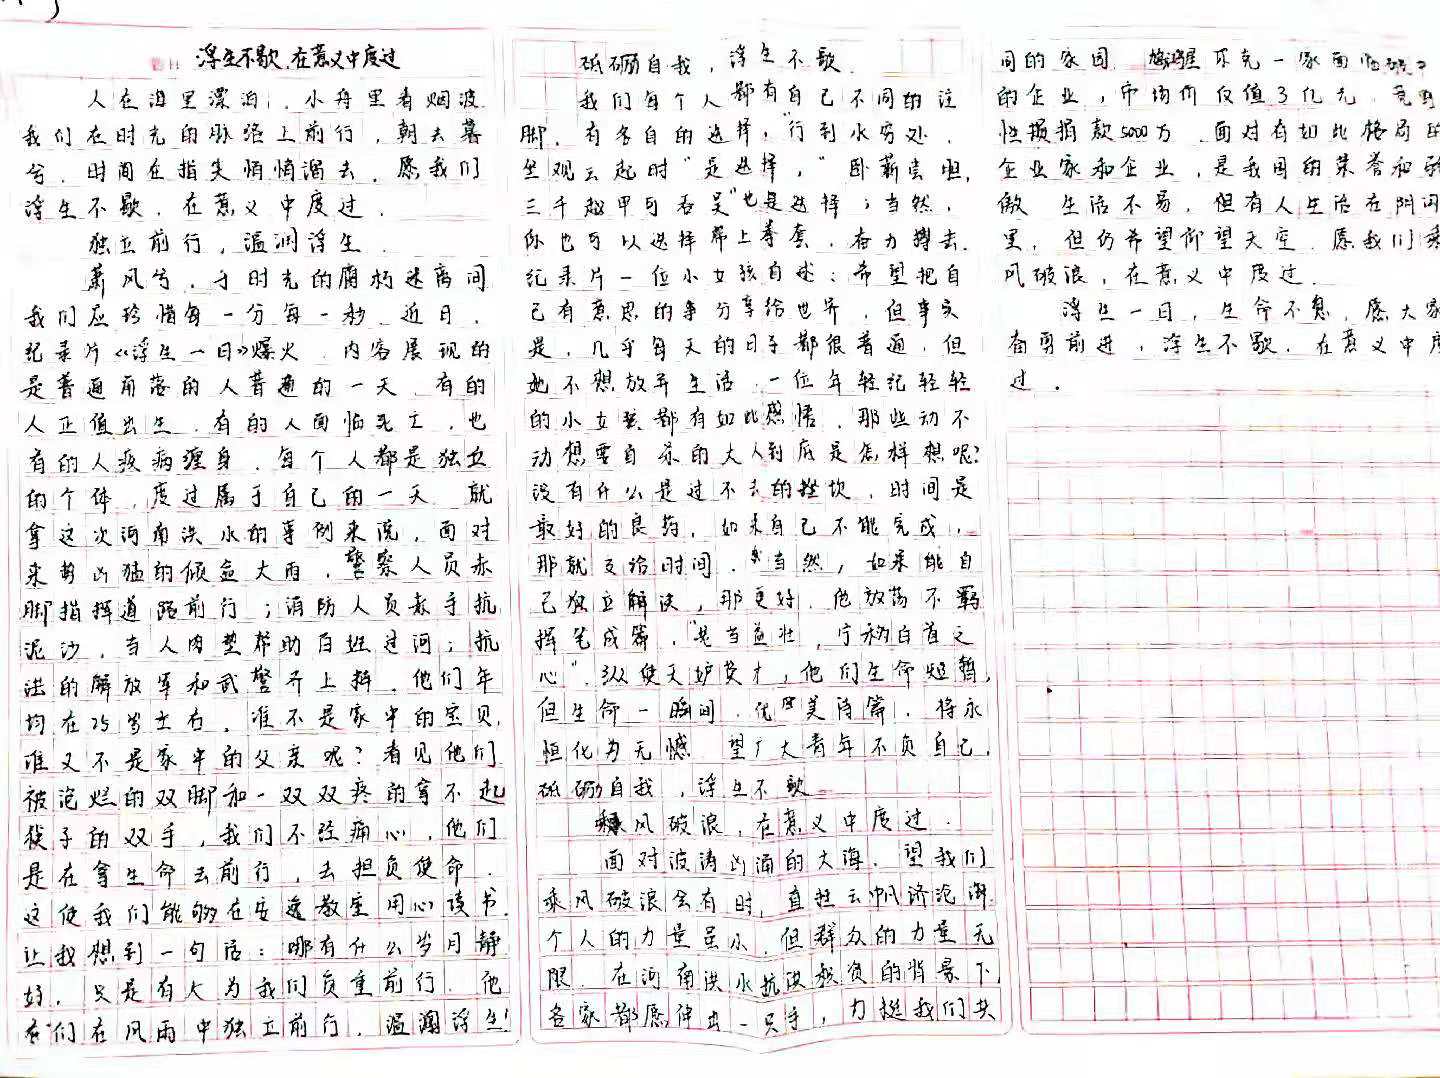 浮生不歇,在意义中度过
人在海里漂泊,小舟里看烟波
我们在时光的脉络上前行,朝去暮
兮.时间在指尖悄悄溜去.愿我们
浮生不歇.在意义中度过.
独立前行,温润浮生.
萧风兮.于时光的腐朽迷离间
我们应珍惜每一分每一秒.近日.
纪录片《浮生一日》爆火.内容展现的
是普通角落的人普通的一天.有的
人正值出生.有的人面临死亡.也
有的人疾病缠身.每个人都是独立
的个体,度过属于自己的一天.就
拿这次河南洪水的事例来说,面对
来势凶猛的倾盆大雨,警察人员赤
脚指挥道路前行;消防人员赤手抗
泥沙,有人肉垫帮助百姓过河;抗
洪的解放军和武警齐上阵.他们年
均在25岁左右.谁不是家中的宝贝,
谁又不是家中的父亲呢?看见他们
被泡烂的双脚和一双双疼的拿不起
筷子的双手,我们不经痛心,他们
是在拿生命去前行,去担负使命.
这使我们能够在安逸教室用心读书.
让我想到一句话:哪有什么岁月静
好,只是有人为我们负重前行.他
们在风雨中独立前行.温润浮生!
砥砺自我,浮生不歇.
我们每个人都有自己不同的注
脚.有各自的选择,"行到水穷处.
坐观云起时"是选择,"卧薪尝胆,
三千越甲可吞吴"也是选择;当然,
你也可以选择带上拳套,奋力搏击.
纪录片一位小女孩自述:希望把自
己有意思的事分享给世界.但事实
是,几乎每天的日子都很普通,但
她不想放弃生活.一位年轻纪轻轻
的小女孩都有如此感悟,那些动不
动想要自杀的大人到底是怎样想呢?
没有什么是过不去的挫坎,时间是
最好的良药,如果自己不能完成,
那就交给时间.当然,如果能自
己独立解决,那更好.他放荡不羁
挥笔成篇,"老当益壮,宁移白首之
心".纵使天妒英才,他们生命短暂,
但生命一瞬间.优美诗篇.将永
恒化为无憾.望广大青年不负自己,
砥砺自我,浮生不歇
乘风破浪,在意义中度过.
面对波涛凶涌的大海.望我们
乘风破浪会有时,直挂云帆济沧海.
个人的力量虽小.但群众的力量无
限.在河南洪水抗洪救负的背景下,
各家都愿伸出一只手,力挺我们共
同的家园.鸿星尔克一家面临破产
的企业,市均价仅值3亿元.竟
性捐款5000万.面对有如此格局的
企业家和企业,是我国的荣誉和骄
傲.生活不易,但有人生活在阴沟
里,但仍希望仰望天空.愿我们乘
风破浪,在意义中度过.
浮生一日,生命不息,愿大家
奋勇前进,浮生不歇.在意义中度
过.